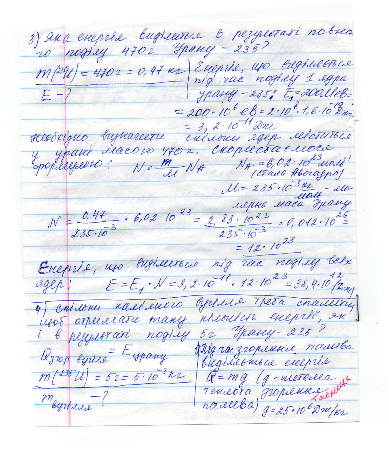 3) Яка енергія виділиться в результаті повно-
го поділу 470г Урану - 235?
m(²³⁵U) = 470г = 0,47 кг
E - ?
Енергія, що виділяється
під час поділу 1 ядра
урану - 235: E₁ = 200МеВ =
= 200·10⁶ еВ = 2·10⁸·1,6·10⁻¹⁹Дж =
= 3,2·10⁻¹¹ Дж.
Необхідно визначити скільки ядер міститься
у урані масою 470г, скористаємося
формулою: N = m/M · N_A N_A = 6,02·10²³ моль⁻¹
(стала Авогадро)
M = 235·10⁻³ кг/моль - мо-
лярна маса Урану
N = 0,47/235·10⁻³ · 6,02·10²³ = 2,83·10²³/235·10⁻³ = 0,012·10²⁶
= 12·10²³
Енергія, що виділиться під час поділу всіх
ядер: E = E₁·N = 3,2·10⁻¹¹·12·10²³ = 38,4·10¹² (Дж)
4) Скільки кам'яного вугілля треба спалити,
щоб отримати таку кількість енергії, як
і в результаті поділу 5г Урану - 235?
Q згор вугілля = E урану
m(²³⁵U) = 5г = 5·10⁻³ кг
m вугілля - ?
Під час згоряння палива
виділяється енергія
Q = mq (q - питома
теплота згоряння
палива) таблиця
q = 25·10⁶ Дж/кг